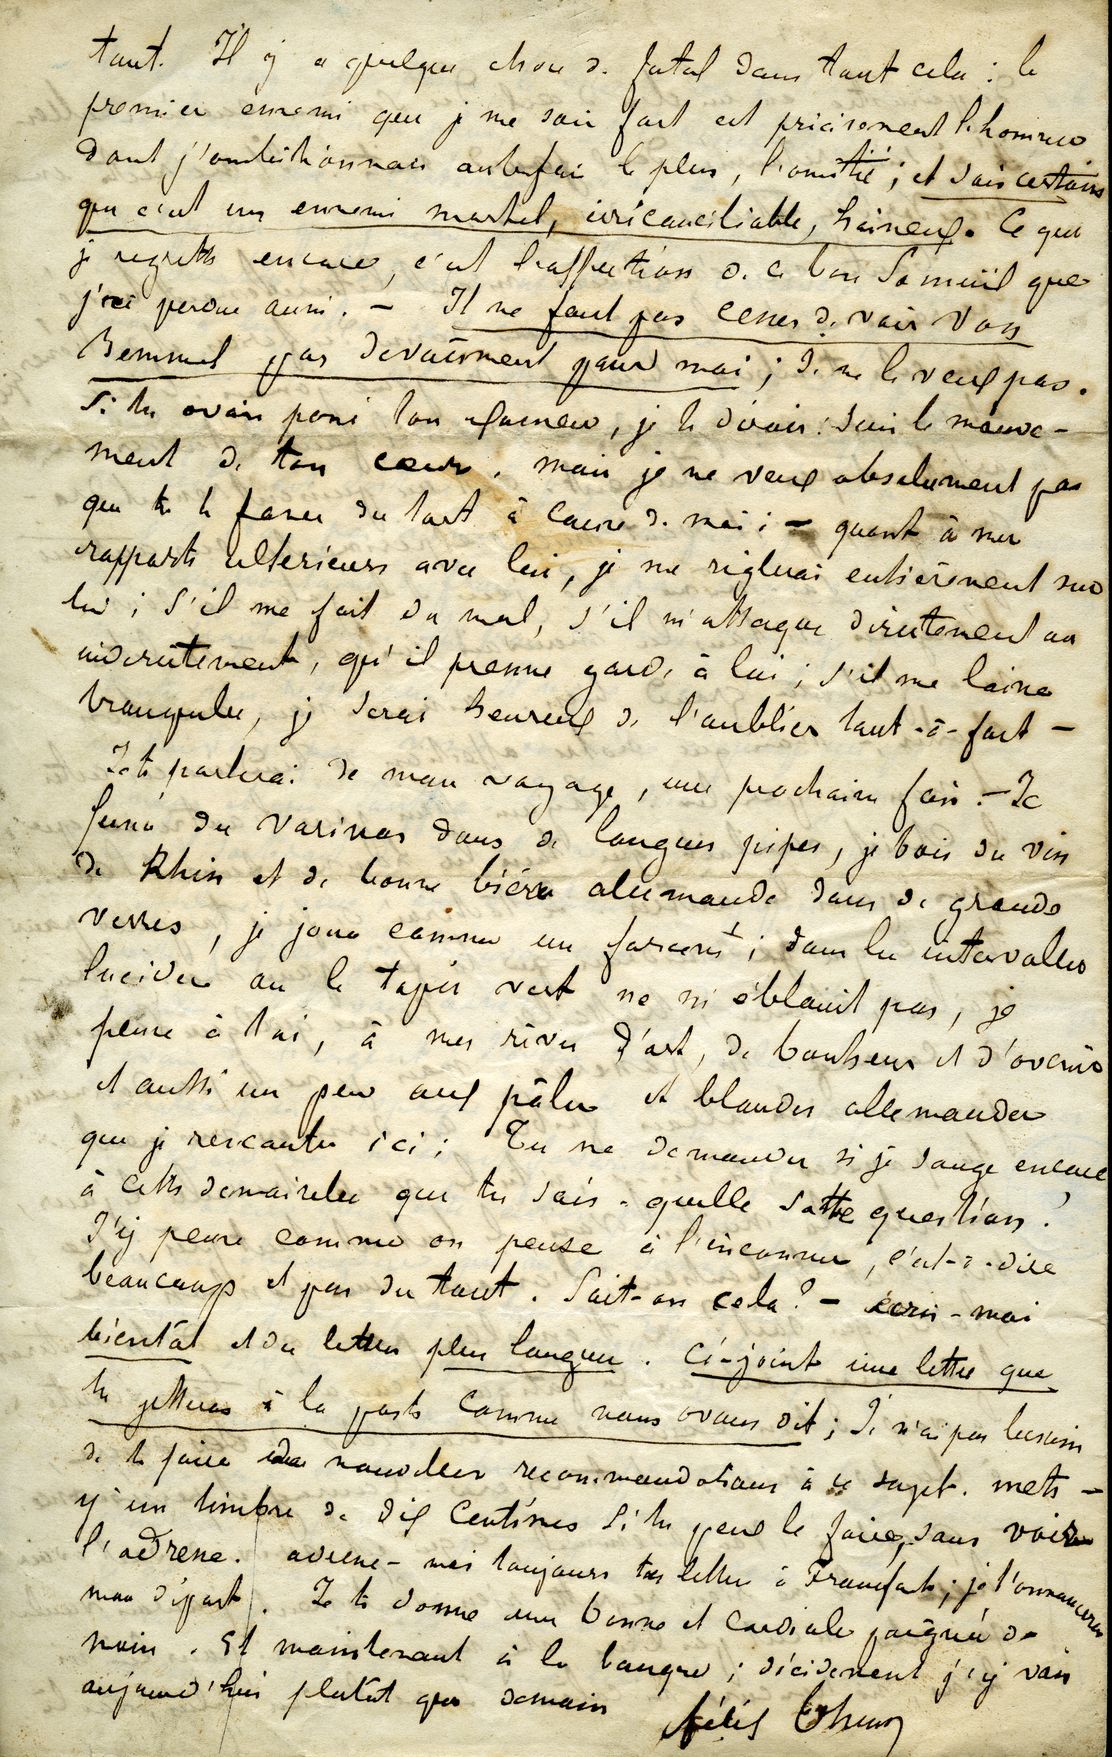 tout. Il y a quelque chose de fatal dans tout cela : le
premier ennemi que je me sois fait est précisément l'homme
dont j'ambitionnais autrefois le plus, l'amitié ; et sois certain
que c'est un ennemi mortel, irréconciliable, haineux. Ce que
je regrette encore, c'est l'affection de ce bon Samuël que
j'ai perdue aussi. — Il ne faut pas cesser de voir Van
Bemmel par dévouement pour moi ; Je ne le veux pas.
Si tu avais posé ton , je te dirais : suis le mouve-
ment de ton cœur. mais je ne veux absolument pas
que tu te fasses du tort à cause de moi ; — quant à mes
rapports ultérieurs avec lui, je me règlerai entièrement sur
lui ; s'il me fait du mal, s'il m'attaque directement ou
indirectement, qu'il prenne garde à lui ; s'il me laisse
tranquille, je serai heureux de l'oublier tout-à-fait —
Je te parlerai de mon voyage, une prochaine fois. — Je
fume du varinas dans de longues pipes, je bois du vin
de Rhin et de bonne bière allemande dans de grands
verres, je joue comme un forcené ; dans les intervalles
lucides où le tapis vert ne m'éblouit pas, je
pense à toi, à mes rêves d'art, de bonheur et d'avenir
et aussi un peu aux pâles et blondes allemandes
que je rencontre ici ; Tu me demandes si je songe encore
à cette demoiselle que tu sais. quelle sotte question ?
J'y pense comme on pense à l'inconnu, c'est-à-dire
beaucoup et pas du tout. Sait-on cela ? — écris-moi
bientôt et des lettres plus longues. Ci-joint une lettre que
tu jetteras à la poste comme nous avons dit ; Je n'ai pas besoin
de te faire de nouvelles recommandations à ce sujet. mets-
y un timbre de dix Centimes si tu peux le faire, sans voir
l'adresse. adresse-moi toujours tes lettres à Francfort ; je t'annoncerai
mon départ. Je te donne une bonne et cordiale poignée de
main. Et maintenant à la banque ; décidément j'y vais
aujourd'hui plutôt que demain Félix Thean